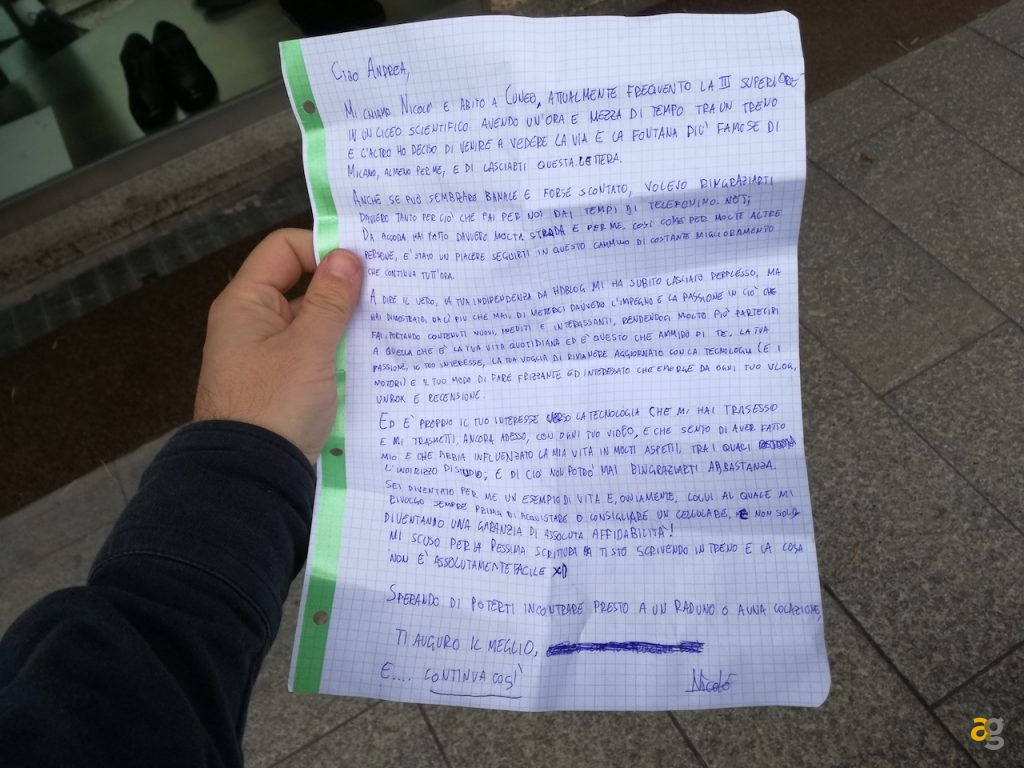 CIAO ANDREA,
MI CHIAMO NICOLÒ E ABITO A CUNEO, ATTUALMENTE FREQUENTO LA III SUPERIORE
IN UN LICEO SCIENTIFICO. AVENDO UN'ORA E MEZZA DI TEMPO TRA UN TRENO
E L'ALTRO HO DECISO DI VENIRE A VEDERE LA VIA E LA FONTANA PIU' FAMOSE DI
MILANO, ALMENO PER ME, E DI LASCIARTI QUESTA LETTERA.
ANCHE SE PUÒ SEMBRARE BANALE E FORSE SCONTATO, VOLEVO RINGRAZIARTI
DAVVERO TANTO PER CIO' CHE FAI PER NOI DAI TEMPI DI TELEFONINO.NET;
DA ALLORA HAI FATTO DAVVERO MOLTA STRADA E PER ME, COSÌ COME PER MOLTE ALTRE
PERSONE, E' STATO UN PIACERE SEGUIRTI IN QUESTO CAMMINO DI COSTANTE MIGLIORAMENTO
CHE CONTINUA TUTT'ORA.
A DIRE IL VERO, LA TUA INDIPENDENZA DA HDBLOG MI HA SUBITO LASCIATO PERPLESSO, MA
HAI DIMOSTRATO, DA LÌ PIU CHE MAI, DI METTERCI DAVVERO L'IMPEGNO E LA PASSIONE IN CIO' CHE
FAI, PORTANDO CONTENUTI NUOVI, INEDITI E INTERESSANTI, RENDENDOCI MOLTO PIU' PARTECIPI
A QUELLA CHE E' LA TUA VITA QUOTIDIANA ED E' QUESTO CHE AMMIRO DI TE, LA TUA
PASSIONE, IL TUO INTERESSE, LA TUA VOGLIA DI RIMANERE AGGIORNATO CON LA TECNOLOGIA (E I
MOTORI) E IL TUO MODO DI FARE FRIZZANTE ED INTERESSATO CHE EMERGE DA OGNI TUO VLOG,
UNBOX E RECENSIONE.
ED E' PROPRIO IL TUO INTERESSE VERSO LA TECNOLOGIA CHE MI HAI TRASMESSO
E MI TRASMETTI, ANCORA ADESSO, CON OGNI TUO VIDEO, E CHE SENTO DI AVER FATTO
MIO E CHE ABBIA INFLUENZATO LA MIA VITA IN MOLTI ASPETTI, TRA I QUALI
L'INDIRIZZO DI STUDIO; E DI CIO' NON POTRO' MAI RINGRAZIARTI ABBASTANZA.
SEI DIVENTATO PER ME UN ESEMPIO DI VITA E, OVVIAMENTE, COLUI AL QUALE MI
RIVOLGO SEMPRE PRIMA DI ACQUISTARE O CONSIGLIARE UN CELLULARE, E NON SOLO
DIVENTANDO UNA GARANZIA DI ASSOLUTA AFFIDABILITA'!
MI SCUSO PER LA PESSIMA SCRITTURA MA TI STO SCRIVENDO IN TRENO E LA COSA
NON E' ASSOLUTAMENTE FACILE XD
SPERANDO DI POTERTI INCONTRARE PRESTO A UN RADUNO O A UNA COLAZIONE,
TI AUGURO IL MEGLIO,
E.... CONTINUA COSÌ
Nicolò
ag